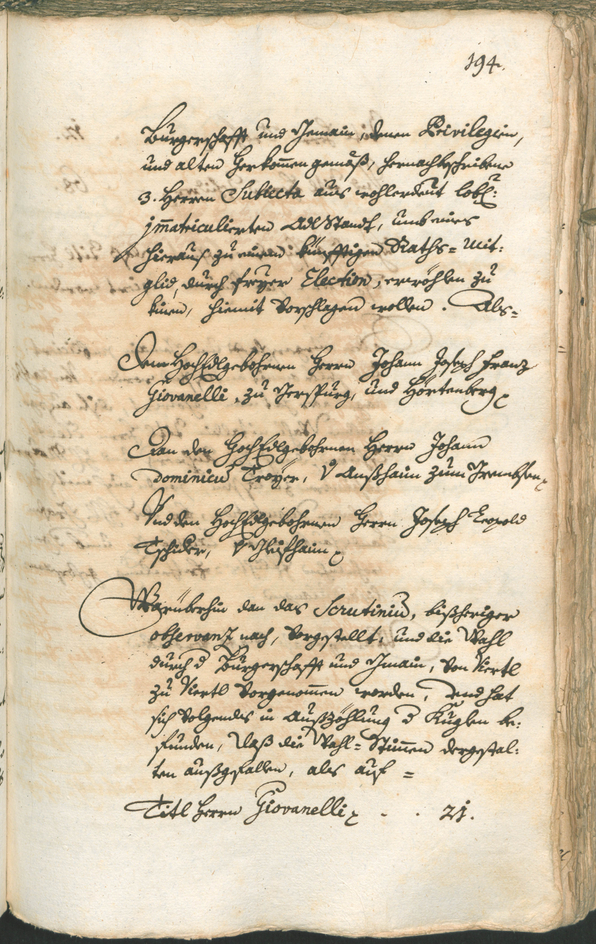 194.
Burgerschafft und Gemain, denen Privilegien,
und alten Herkom̄en gemäß, hernachbeschribene
3. Herren Subiecta aus wohlerdeut lobl:
jm̄atriculierten Adl Standt, umb aines
hieraus zu einem künfftigen Raths- Mit-
glid, durch freyer Election, erwöhlen zu
könen, hiemit Vorschlagen wollen. Als-
Dem HochEdlgebohrnen Herrn Johann Joseph Franz
Giovanelli, zu Gerspurg, und Hörtenberg
Dan den HochEdlgebohrnen Herrn Johann
Dominicu Troyer, V Außhaim zum
Und den HochEdlgebohrnen Herrn Joseph Leopold
Tschider,
Warüberhin dan das Scrutiniu, bißheriger
observanz nach, Vorgestellt, und die Wahl
durch d Burgerschafft und Gmain, Von Viertl
zu Viertl Vorgenommen worden, und hat
sich Volgendes in Außzöhlung d Kuglen be-
funden, daß die Wahl- Stim̄en dergestal-
ten außgefallen, als auf =
Titl Herrn Giovanelli - . . 21.